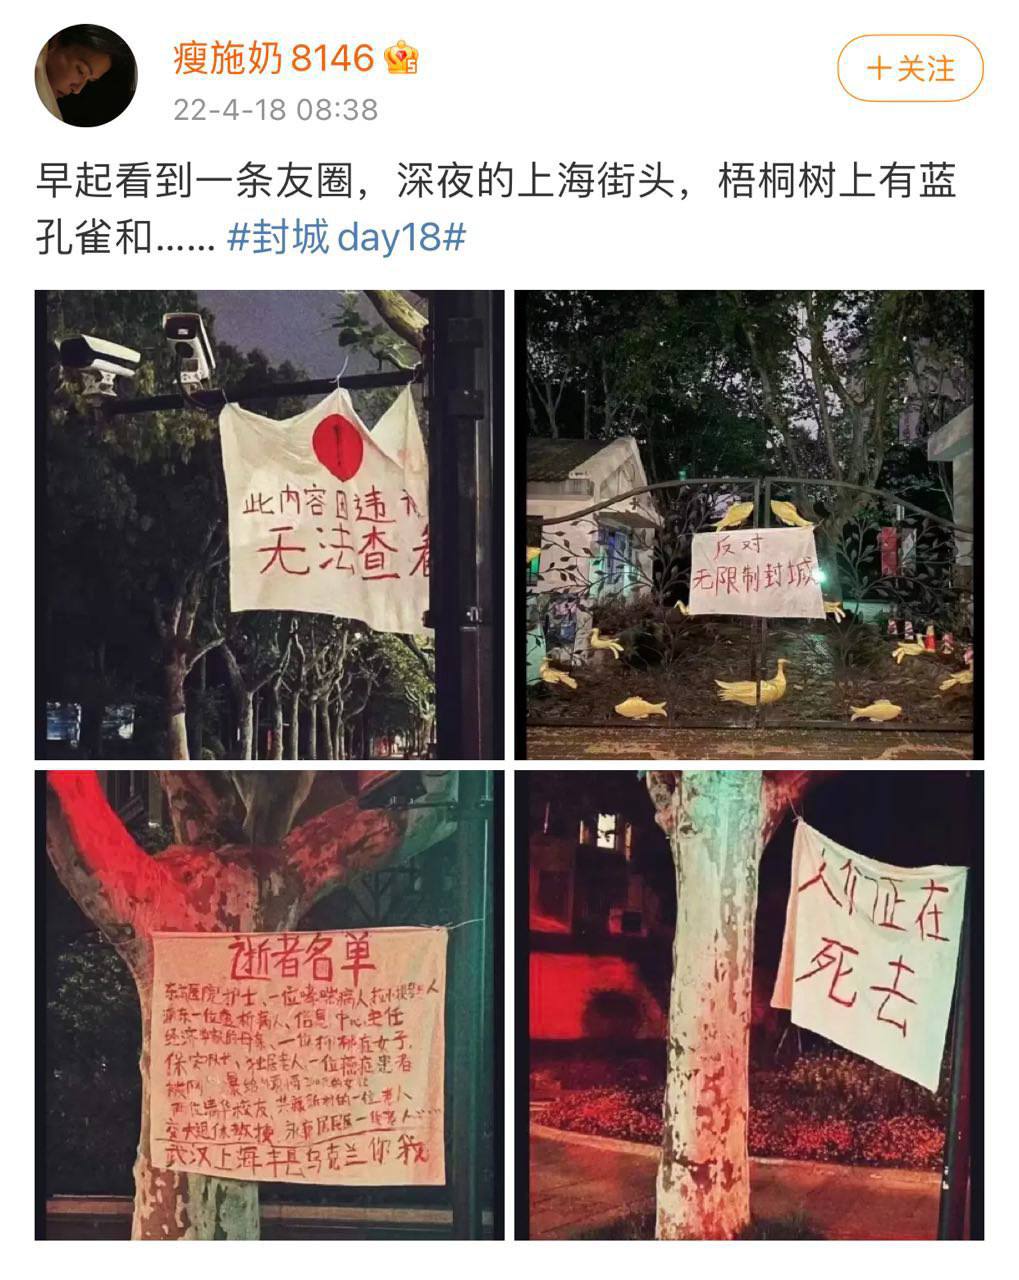 瘦施奶8146
22-4-18 08:38
+关注
早起看到一条友圈，深夜的上海街头，梧桐树上有蓝
孔雀和…… #封城day18#
此内容因违
无法查看
反对
无限制封城
逝者名单
东方医院护士、一位哮喘病人
浦东一位透析病人、信息中心主任
经济学家的母亲、一位抑郁症女子、
保安队长、独居老人、一位癌症患者
两位清华校友
交大退休教授
武汉上海丰县乌克兰你我
人们正在
死去